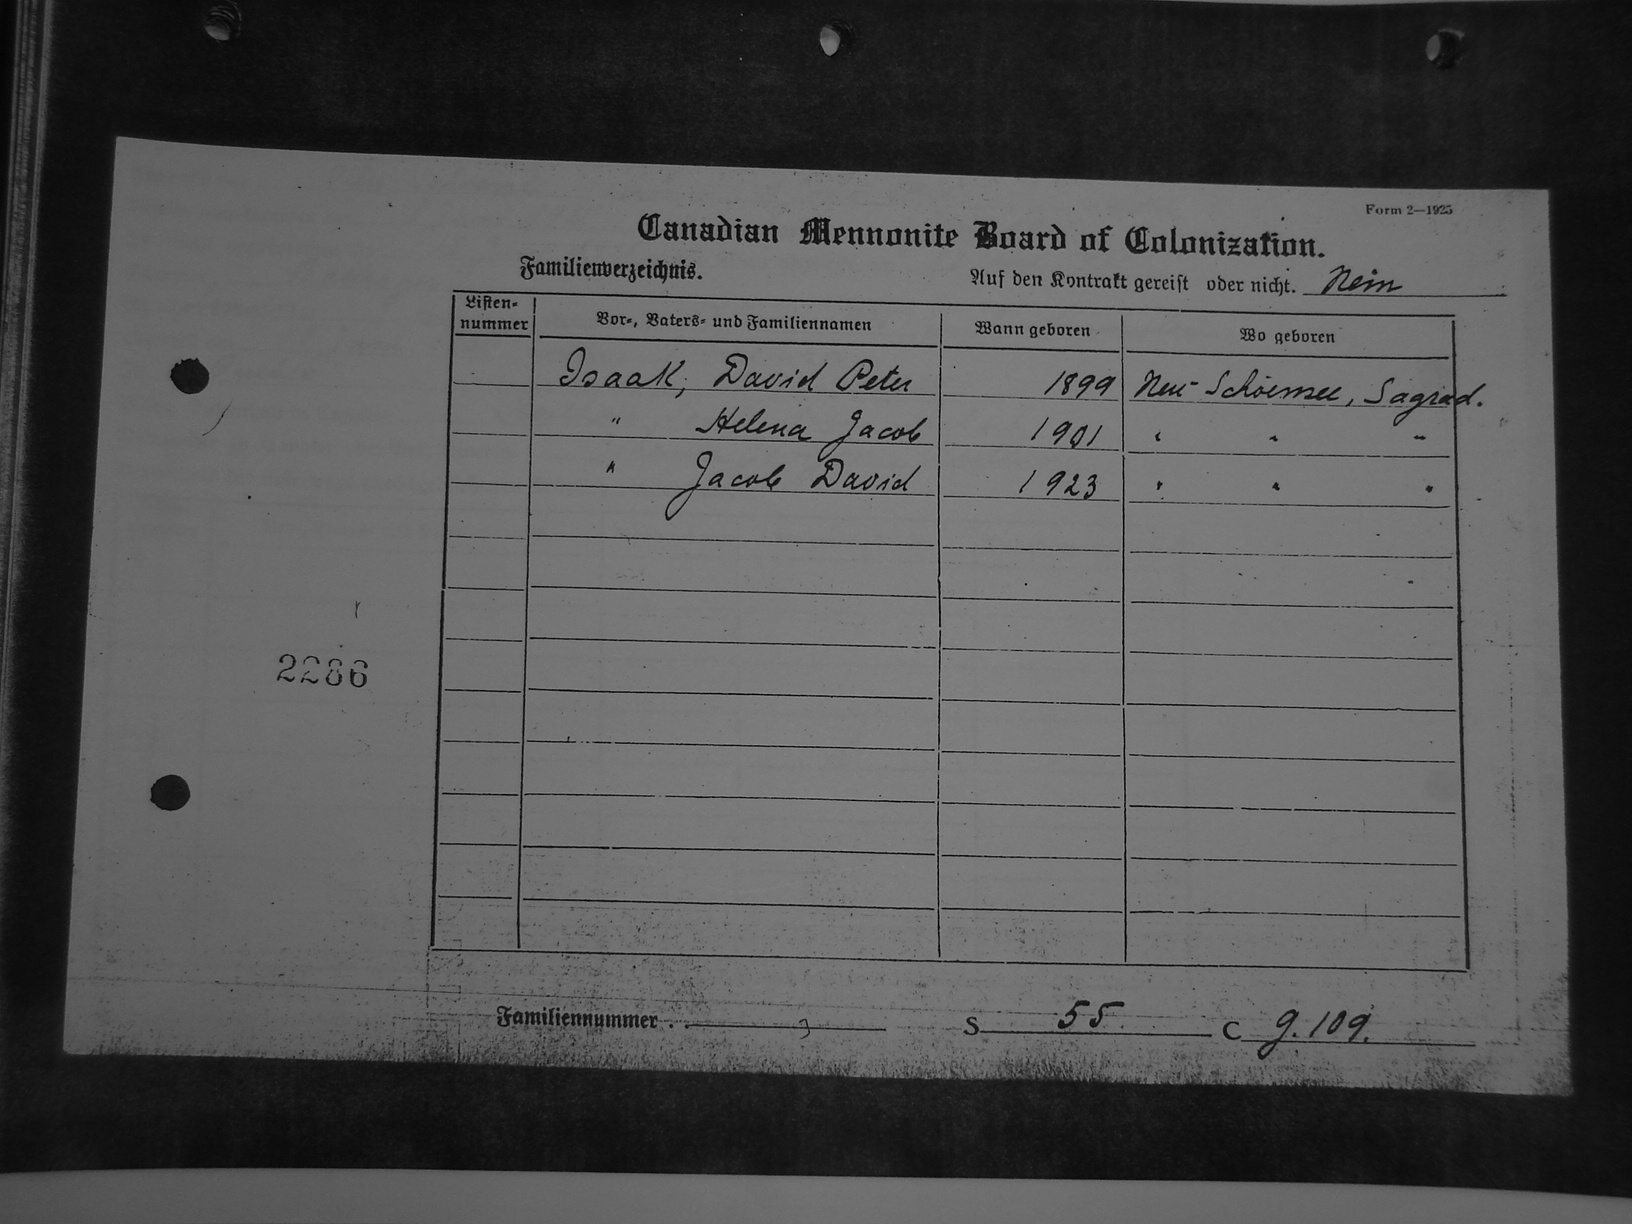 Form 2—1925
Canadian Mennonite Board of Colonization.
Familienverzeichnis. Auf den Kontrakt gereist oder nicht. Nein
Listen-nummer Vor-, Vaters- und Familiennamen Wann geboren Wo geboren
Isaak, David Peter 1899 Neu-Schoensee, Sagrad.
" Helena Jacob 1901 " " "
" Jacob David 1923 " " "
2286
Familiennummer . . S 55. C g. 109.